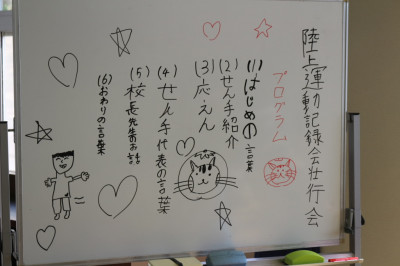 陸上運動記録会壮行会
プログラム
(1)はじめの言葉
(2)せん手紹介
(3)応えん
(4)せん手代表の言葉
(5)校長先生のお話
(6)おわりの言葉